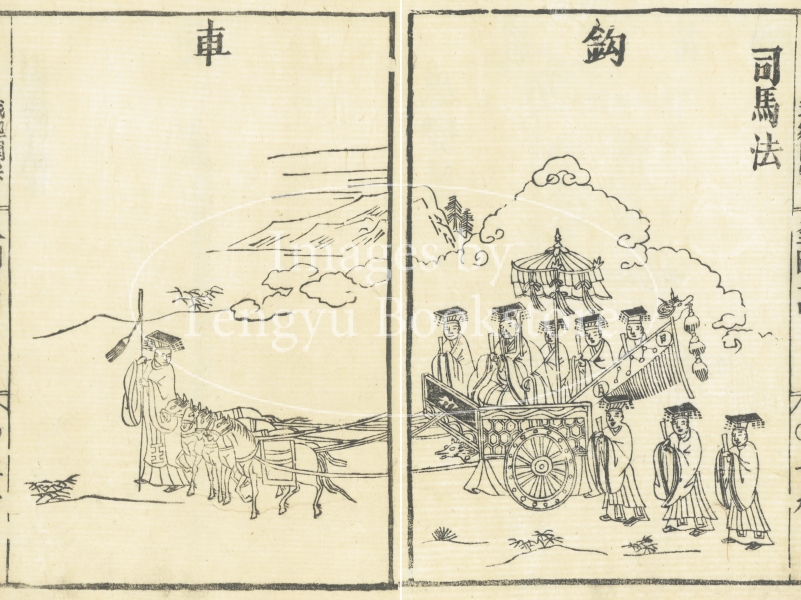 司馬法
鈎
車
Images by
Tengyu Bookstore